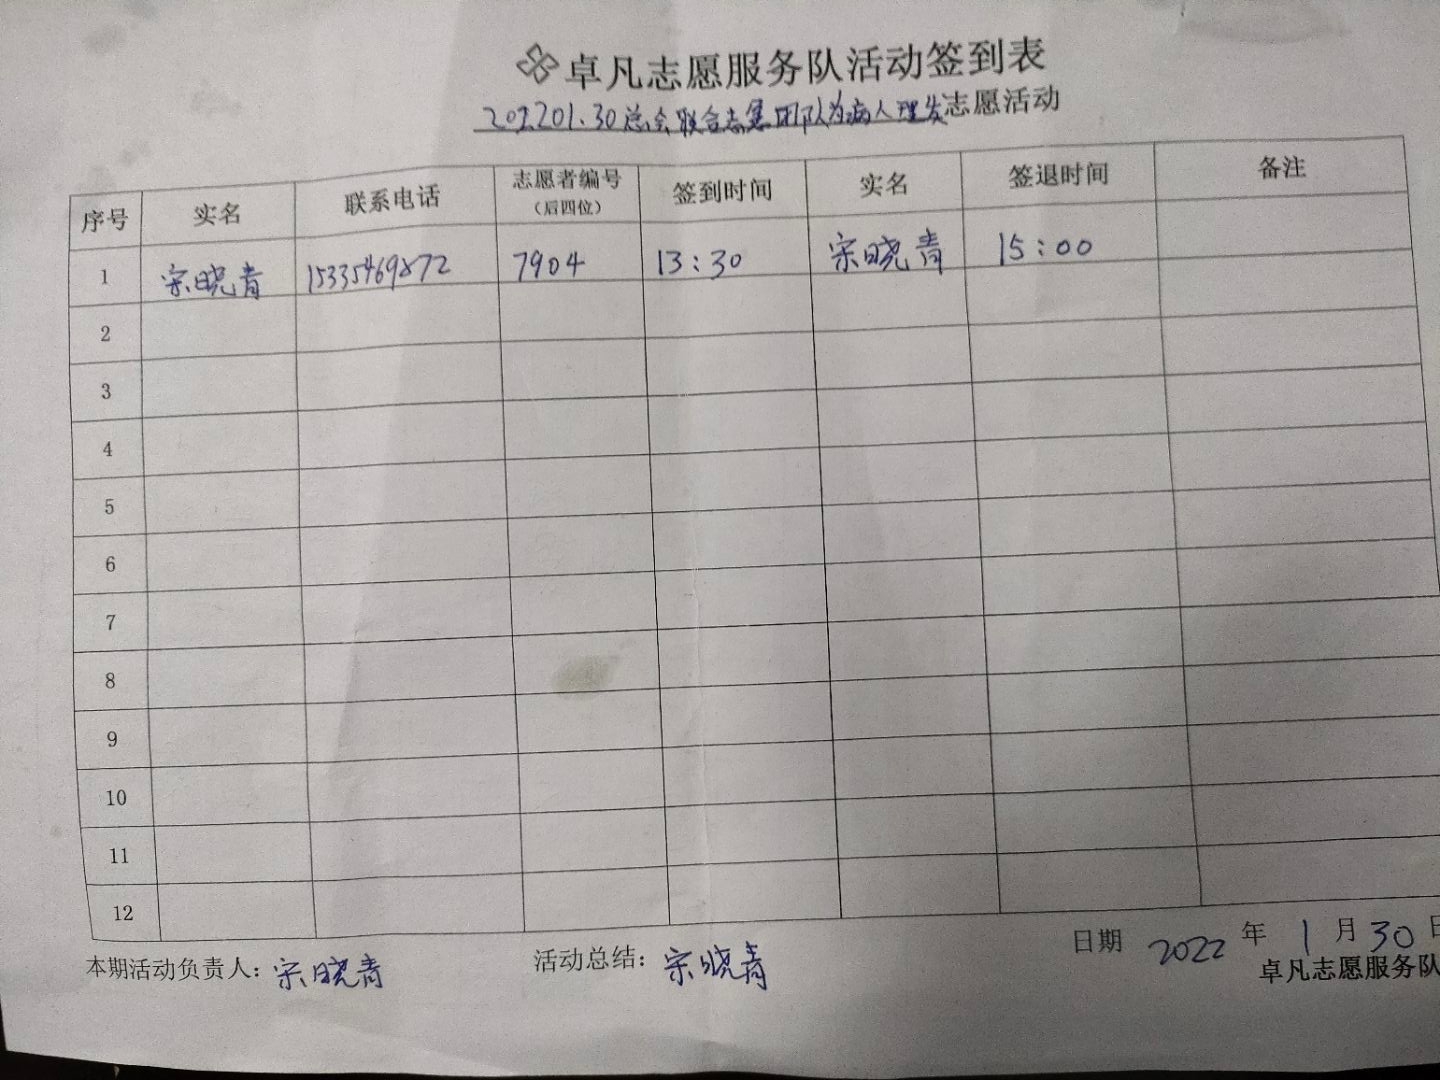 卓凡志愿服务队活动签到表
202201.30总会联合志集团队为病人理发志愿活动
序号 实名 联系电话 志愿者编号（后四位） 签到时间 实名 签退时间 备注
1 宋晓青 15335469872 7904 13:30 宋晓青 15:00
2
3
4
5
6
7
8
9
10
11
12
本期活动负责人：宋晓青 活动总结：宋晓青 日期 2022年1月30日
卓凡志愿服务队